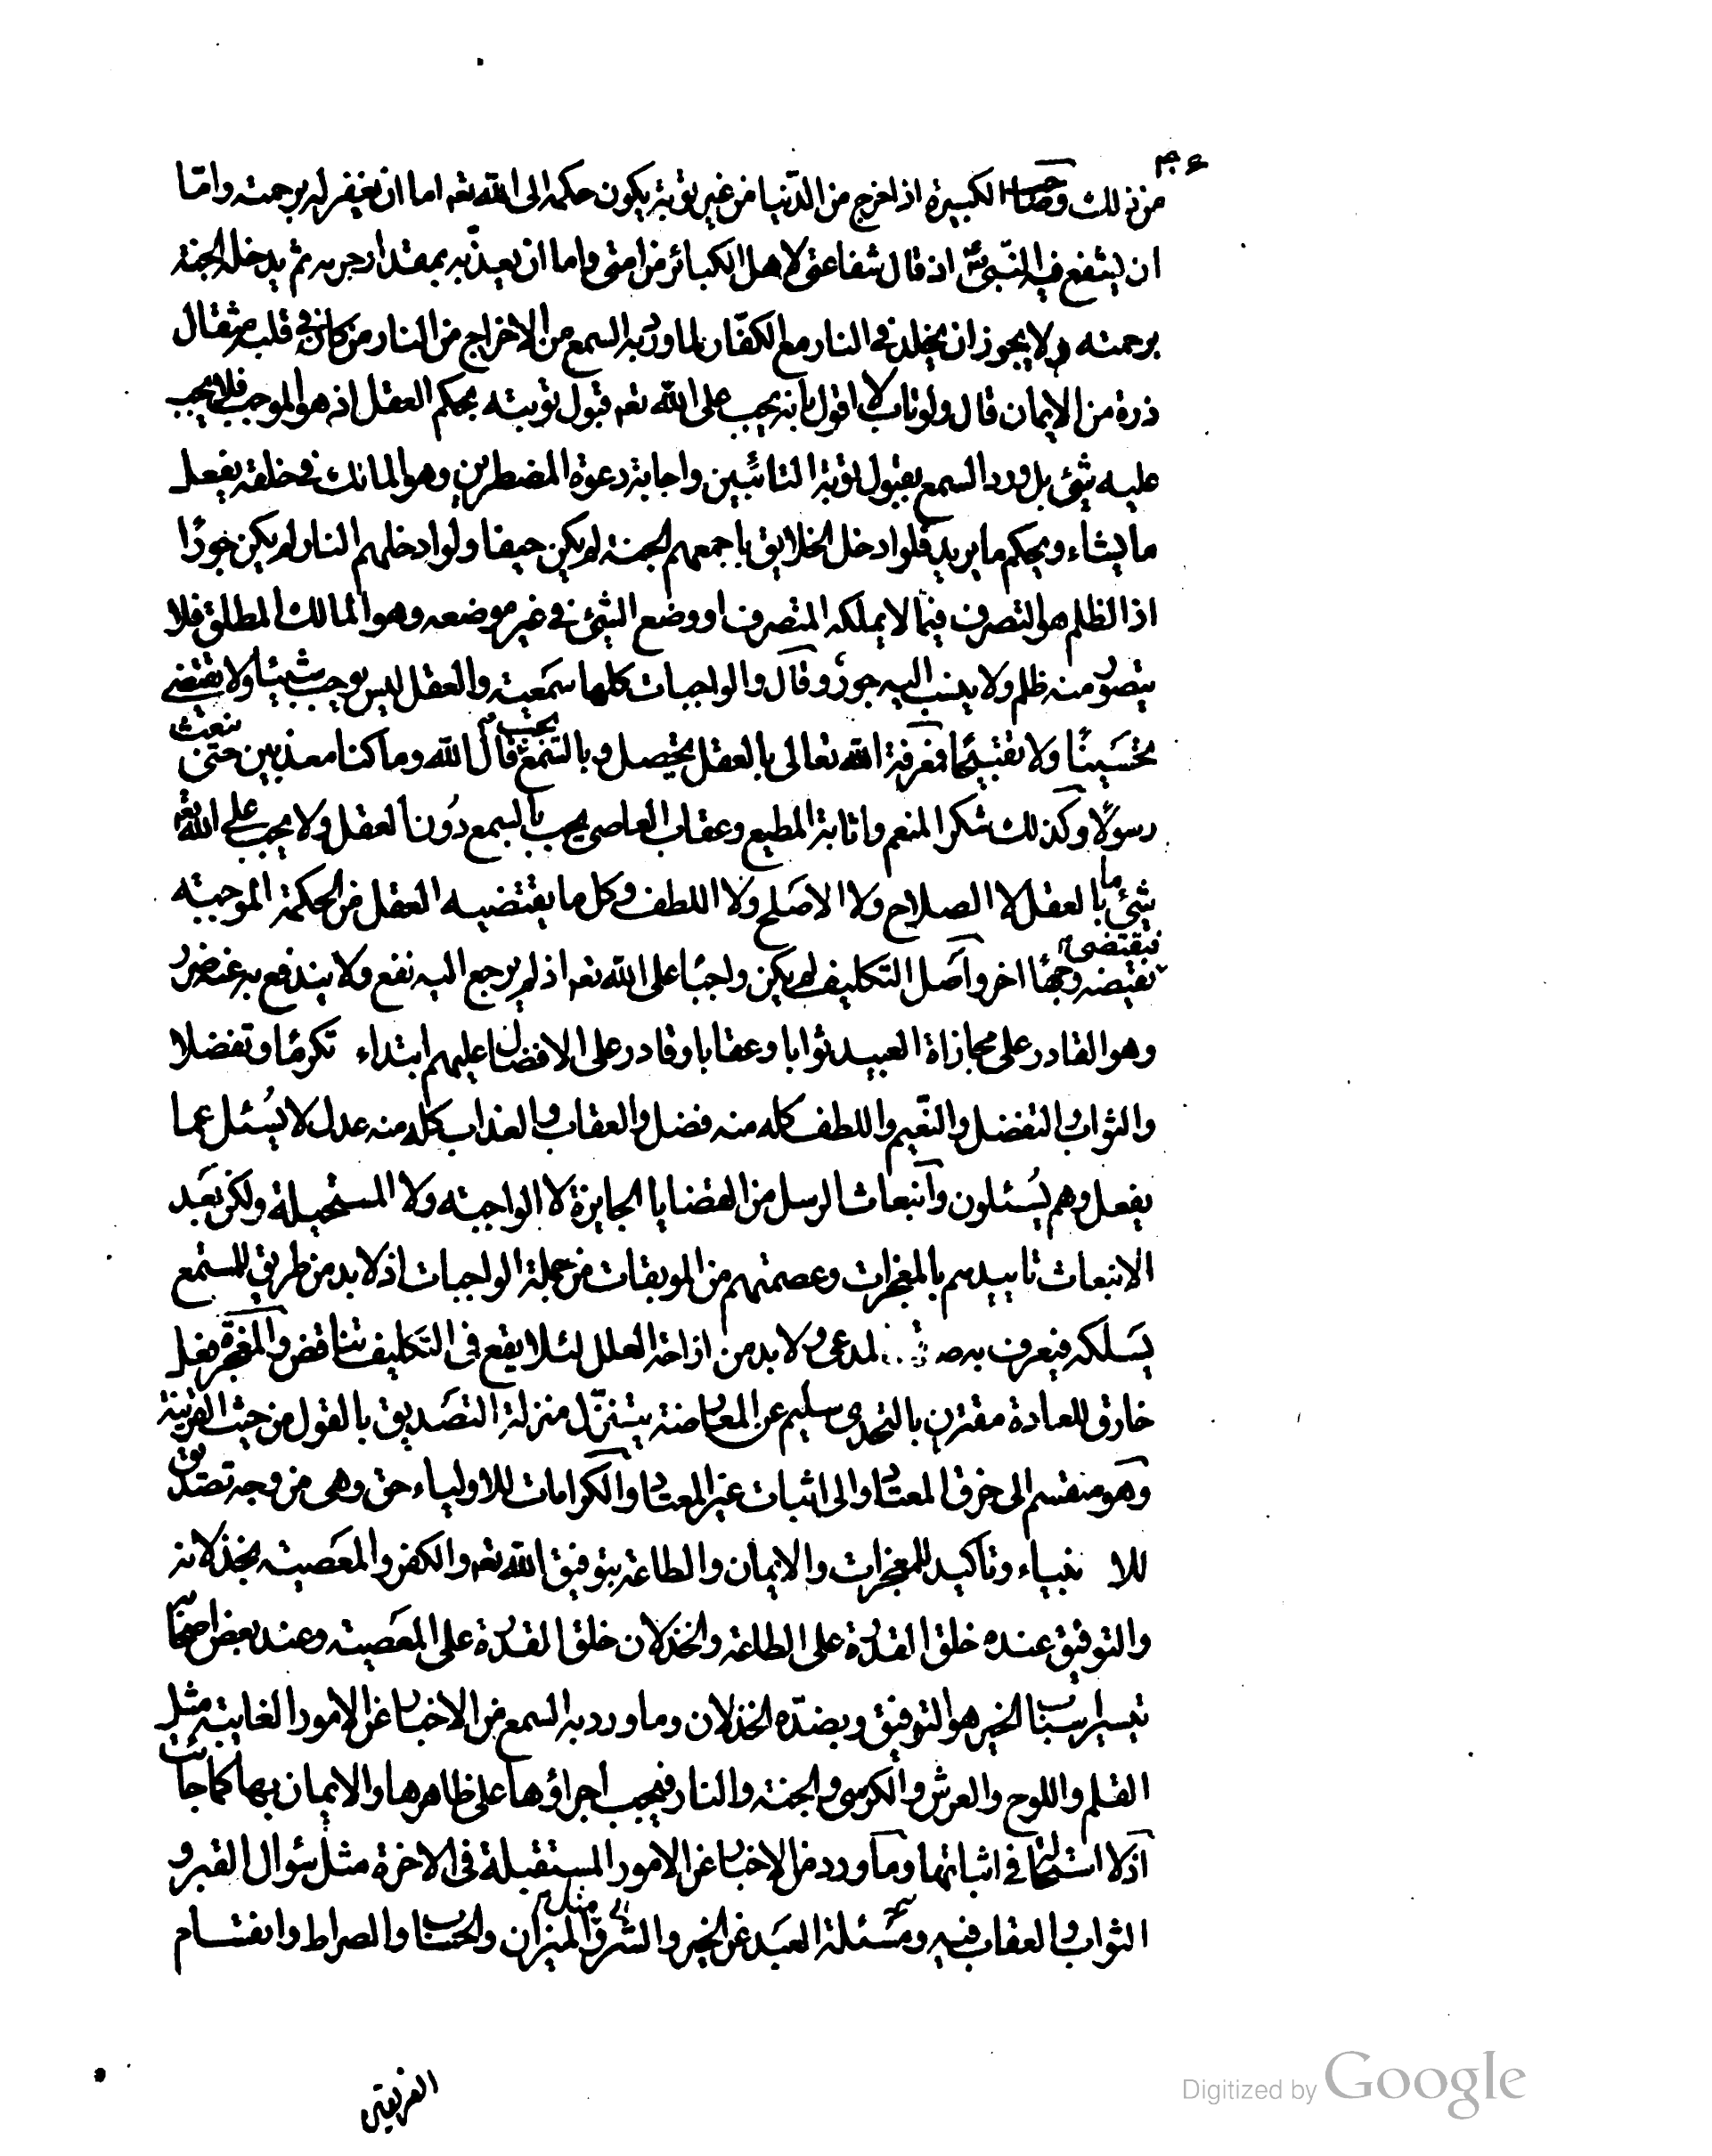 من ذلك وصاحب الكبيرة اذا خرج من الدنيا من غير توبة يكون حكمه الى الله تعه اما ان يغفر له برحمته واما
ان يشفع فيه النبي اذ قال شفاعتى لاهل الكبائر من امتى واما ان يعذبه بمقدار جرمه ثم يدخله الجنة
برحمته ولا يجوز ان يخلد في النار مع الكفار لما ورد به السمع من الاخراج من النار من كان في قلبه مثقال
ذرة من الايمان قال ولو تاب لا اقول بانه يجب على الله تعه قبول توبته بحكم العقل اذ هو الموجب فلا يجب
عليه شئ بل ورد السمع بقبول توبة التائبين واجابة دعوة المضطرين وهو المالك في خلقه يفعل
ما يشاء ويحكم ما يريد فلو ادخل الخلايق باجمعهم الجنة لم يكن حيفا ولو ادخلهم النار لم يكن جورًا
اذ الظلم هو التصرف فيما لا يملكه المتصرف او وضع الشئ في غير موضعه وهو المالك المطلق فلا
يتصور منه ظلم ولا ينسب اليه جور وقال والواجبات كلها سمعية والعقل ليس يوجب شيئا ولا يقتضى
تحسينًا ولا تقبيحًا فمعرفة الله تعالى بالعقل يحصل وبالسمع يجب قال الله وما كنا معذبين حتى نبعث
رسولًا وكذلك شكر المنعم واثابة المطيع وعقاب العاصى يجب بالسمع دون العقل ولا يجب على الله تعه
شئ ما بالعقل لا الصلاح ولا الاصلح ولا اللطف وكل ما يقتضيه العقل من الحكمة الموجبة
فيقتضى نقيضه وجهًا اخر واصل التكليف لم يكن واجبًا على الله تعه اذ لم يرجع اليه نفع ولا يندفع به عنه ضر
وهو القادر على مجازاة العبيد ثوابا وعقابا وقادر على الافضال عليهم ابتداء تكرمًا وتفضلا
والثواب والتفضل والنعيم واللطف كله منه فضل والعقاب والعذاب كله منه عدل لا يُسئل عما
يفعل وهم يُسئلون وانبعاث الرسل من القضايا الجايزة لا الواجبة ولا المستحيلة ولكن بَعد
الانبعاث تاييدهم بالمعجزات وعصمتهم من الموبقات من جملة الواجبات اذ لا بد من طريق للمستمع
يسلكه فيعرف به المدعى ولا بد من ازاحة العلل لئلا يقع في التكليف تناقض والمعجزة فعل
خارق للعادة مقترن بالتحدى سليم عن المعارضة يتنزل منزلة التصديق بالقول من حيث القرينة
وهو منقسم الى خرق المعتاد والى اثبات غير المعتاد والكرامات للاولياء حق وهى من وجه تصديق
للانبياء وتاكيد للمعجزات والايمان والطاعة بتوفيق الله تعه والكفر والمعصية بخذلانه
والتوفيق عنده خلق القدرة على الطاعة والخذلان خلق القدرة على المعصية وعند بعض اصحابه
تيسير اسباب الخير هو التوفيق وبضده الخذلان وما ورد به السمع من الاخبار عن الامور الغايبة مثل
القلم واللوح والعرش والكرسى والجنة والنار فيجب اجراؤها على ظاهرها والايمان بها كما جائت
اذ لا استحالة في اثباتها وما ورد من الاخبار عن الامور المستقبلة في الاخرة مثل سؤال القبر و
الثواب والعقاب فيه ومسئلة العبد عن الخير والشر ومثل الميزان والحساب والصراط وانقسام
الفريقين
Digitized by Google